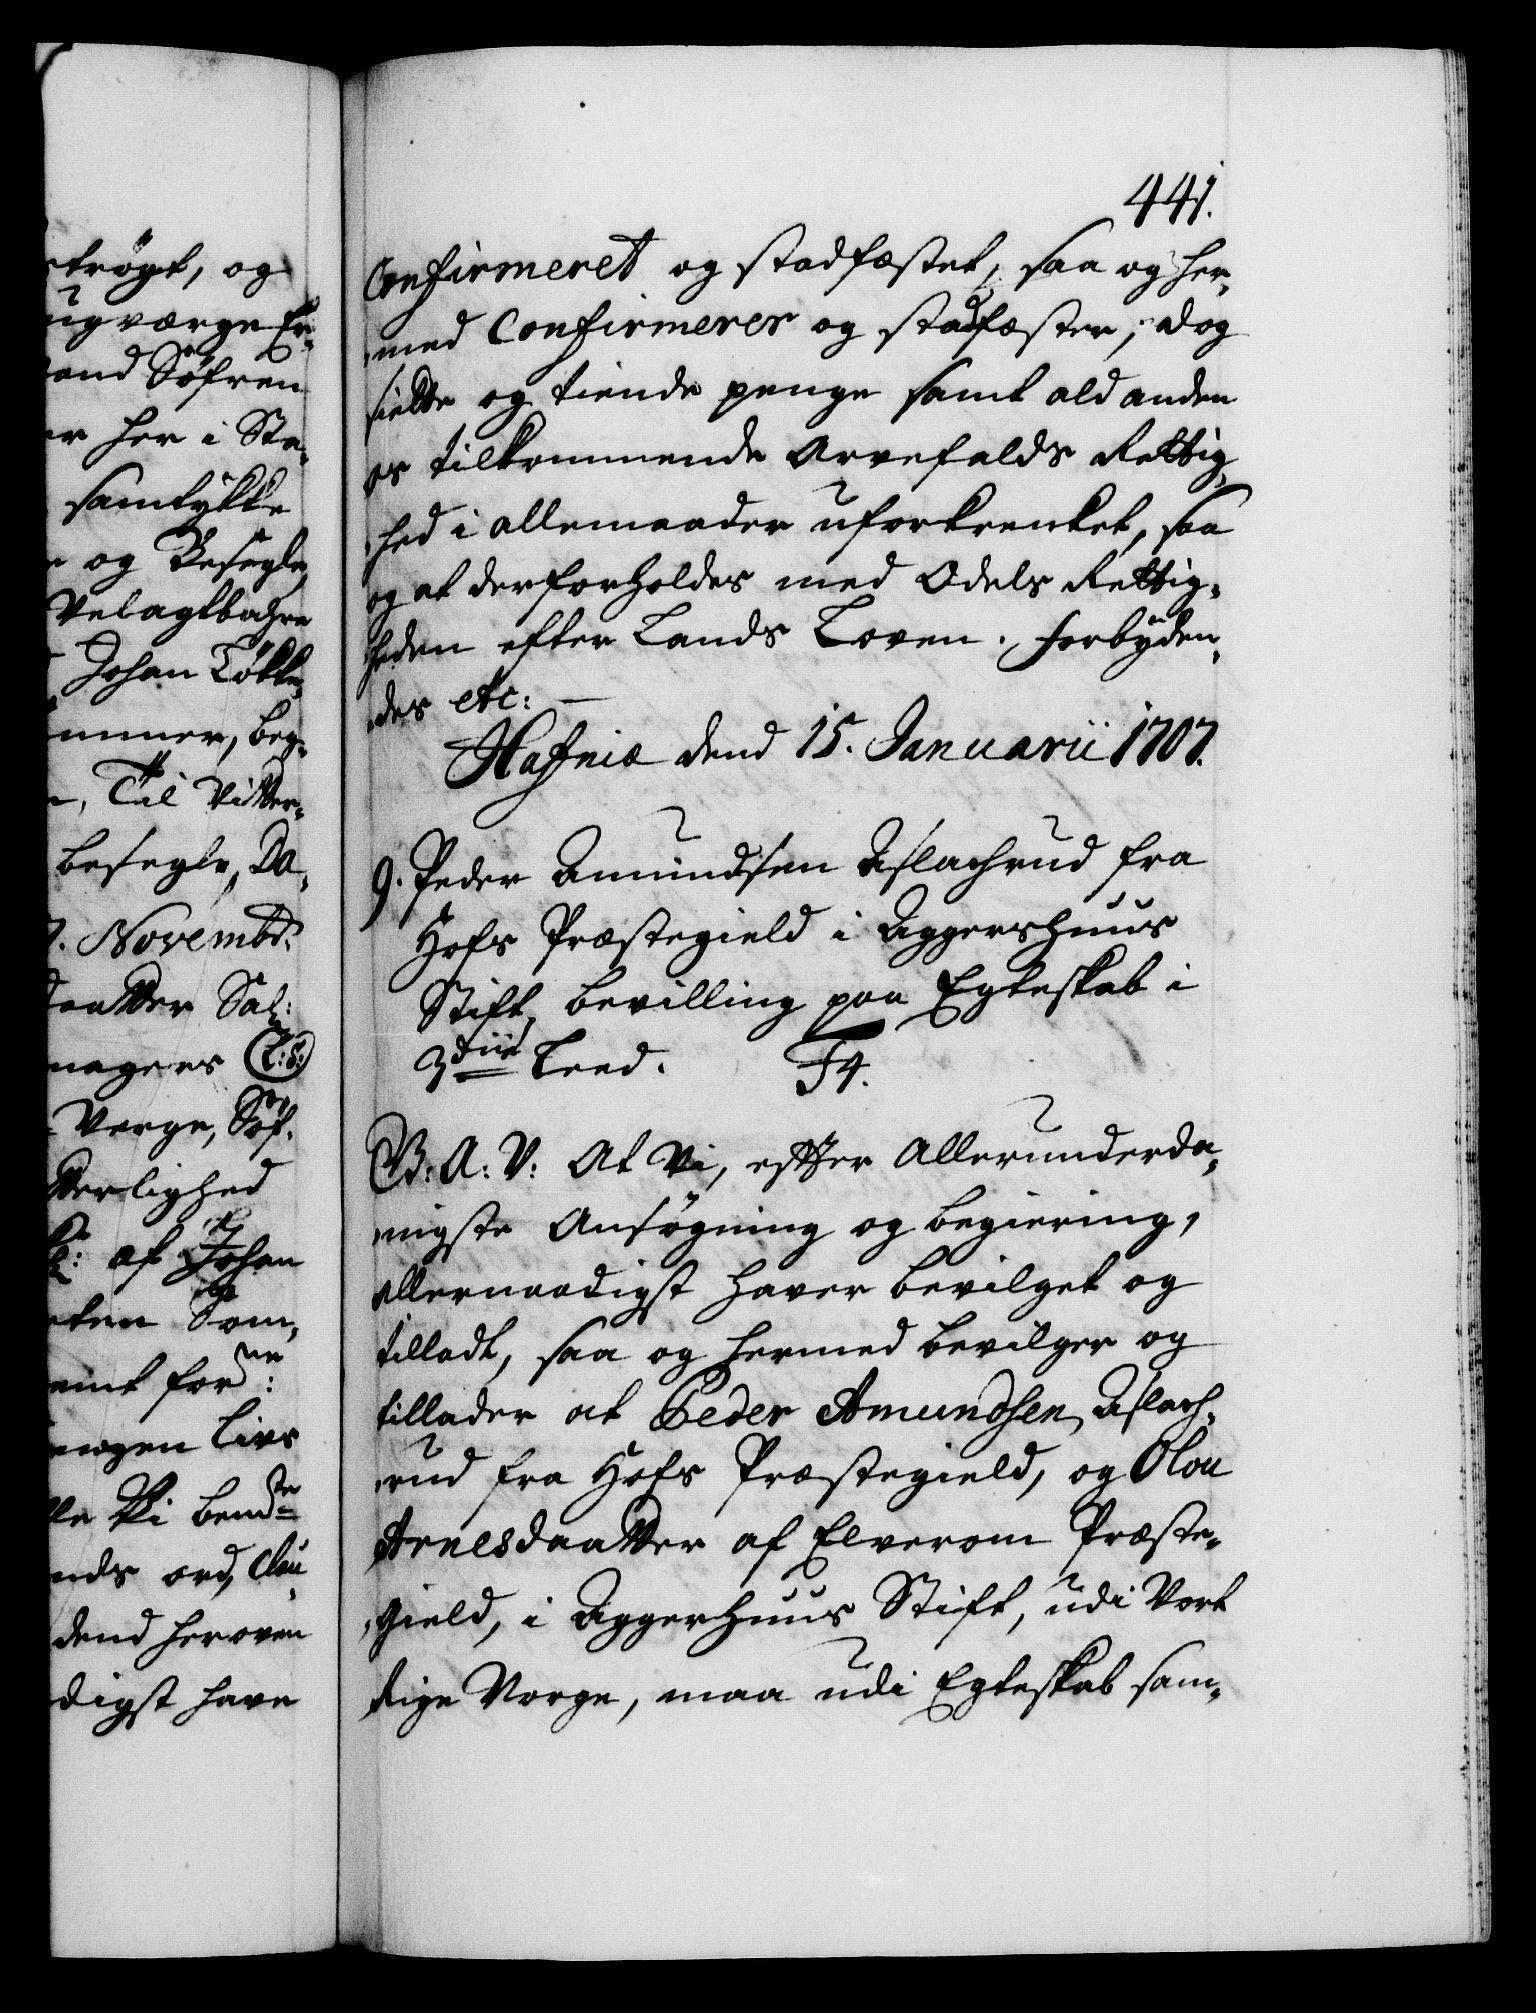 441.
Confirmeret og stadfæstet, saa og her¬
med Confirmerer og stadfæster, dog
siette og tiende penge samt ald anden
os tilkommende Arvefalds Rettig¬
hed i allemaader uforkrenket, saa
og at derforholdes med Odels Rettig¬
heden efter Lands Loven. forbyden¬
des etc: —
Hafniæ dend 15. Januarii 1707.
9. Peder Amundsen Aslachrud fra
Hofs Præstegield i Aggershuus
Stift, bevilling paa Egteskab i
3die Leed. F4.
B: A: V: At Vi, effter Allerunderda¬
nigste Ansøgning og begiering,
allernaadigst haver bevilget og
tilladt, saa og hermed bevilger og
tillader at Peder Amundsen Aslach¬
rud fra Hofs Præstegield, og Olou
Arnesdaatter af Elverom Præste¬
gield, i Aggerhuus Stift, udi Vort
Rige Norge, maa udi Egteskab sam¬
strøgt, og
ugværge Er¬
and Søfren
er her i Sta¬
samtykke
og Besegle,
Velagtbahre
Johan Løkke,
immer, beg¬
Til Vitter¬
besegle, Da¬
7. Novembr:
daatter Sal:
magers (L:S:)
Verge, Søf.
tterlighed
af Johan
ten Som,
emt for:
ogen Livs
Vi bemte
nds ord, Clau
dend heroven
digst have